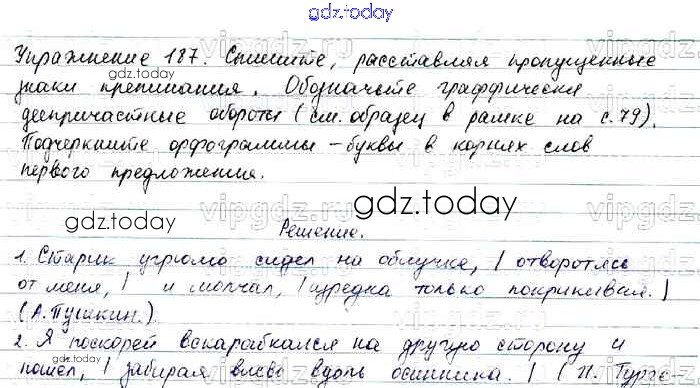 gdz.today
Упражнение 187. Спишите, расставляя пропущенные
gdz.today
знаки препинания. Обозначьте графически
деепричастные обороты (см. образец в рамке на с. 79).
Подчеркните орфограммы - буквы в корнях слов
первого предложения.
gdz.today
gdz.today
Решение.
1. Старик угрюмо сидел на облучке, | отворотясь
от меня, | и молчал, | изредка только покрикивая. |
(А. Пушкин.)
2. Я поскорей вскарабкался на другую сторону и
gdz.today
пошел, | забирая влево вдоль осинника. | (И. Турге-